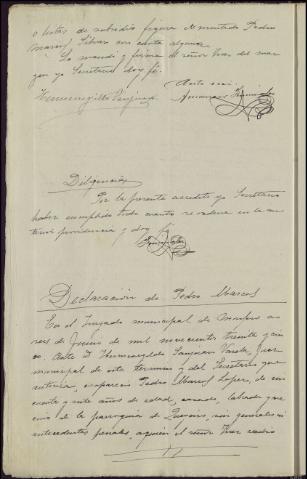 o listas de subsidio figura el mentado Pedro
Marcos López con cuota alguna.
Lo mandó y firma el señor Juez del mar
gen yo Secretario doy fé.
Ante mi:
Hermenegildo Sanjuan
Diligencia
Por la presente acredito yo Secretario
haber cumplido todo cuanto se ordena en la an
terior providencia y doy fé
Declaración de Pedro Marcos
En el Juzgado municipal de a
de Junio de mil novecientos treinta y cin
co. Ante D. Hermenegildo Sanjuan Varela, Juez
municipal de este termino y del Secretario que
autoriza, comparece Pedro Marcos Lopez, de cin
cuenta y siete años de edad, casado, labrador que
es de la parroquia de sin generales ni
antecedentes penales, a quien el señor Juez